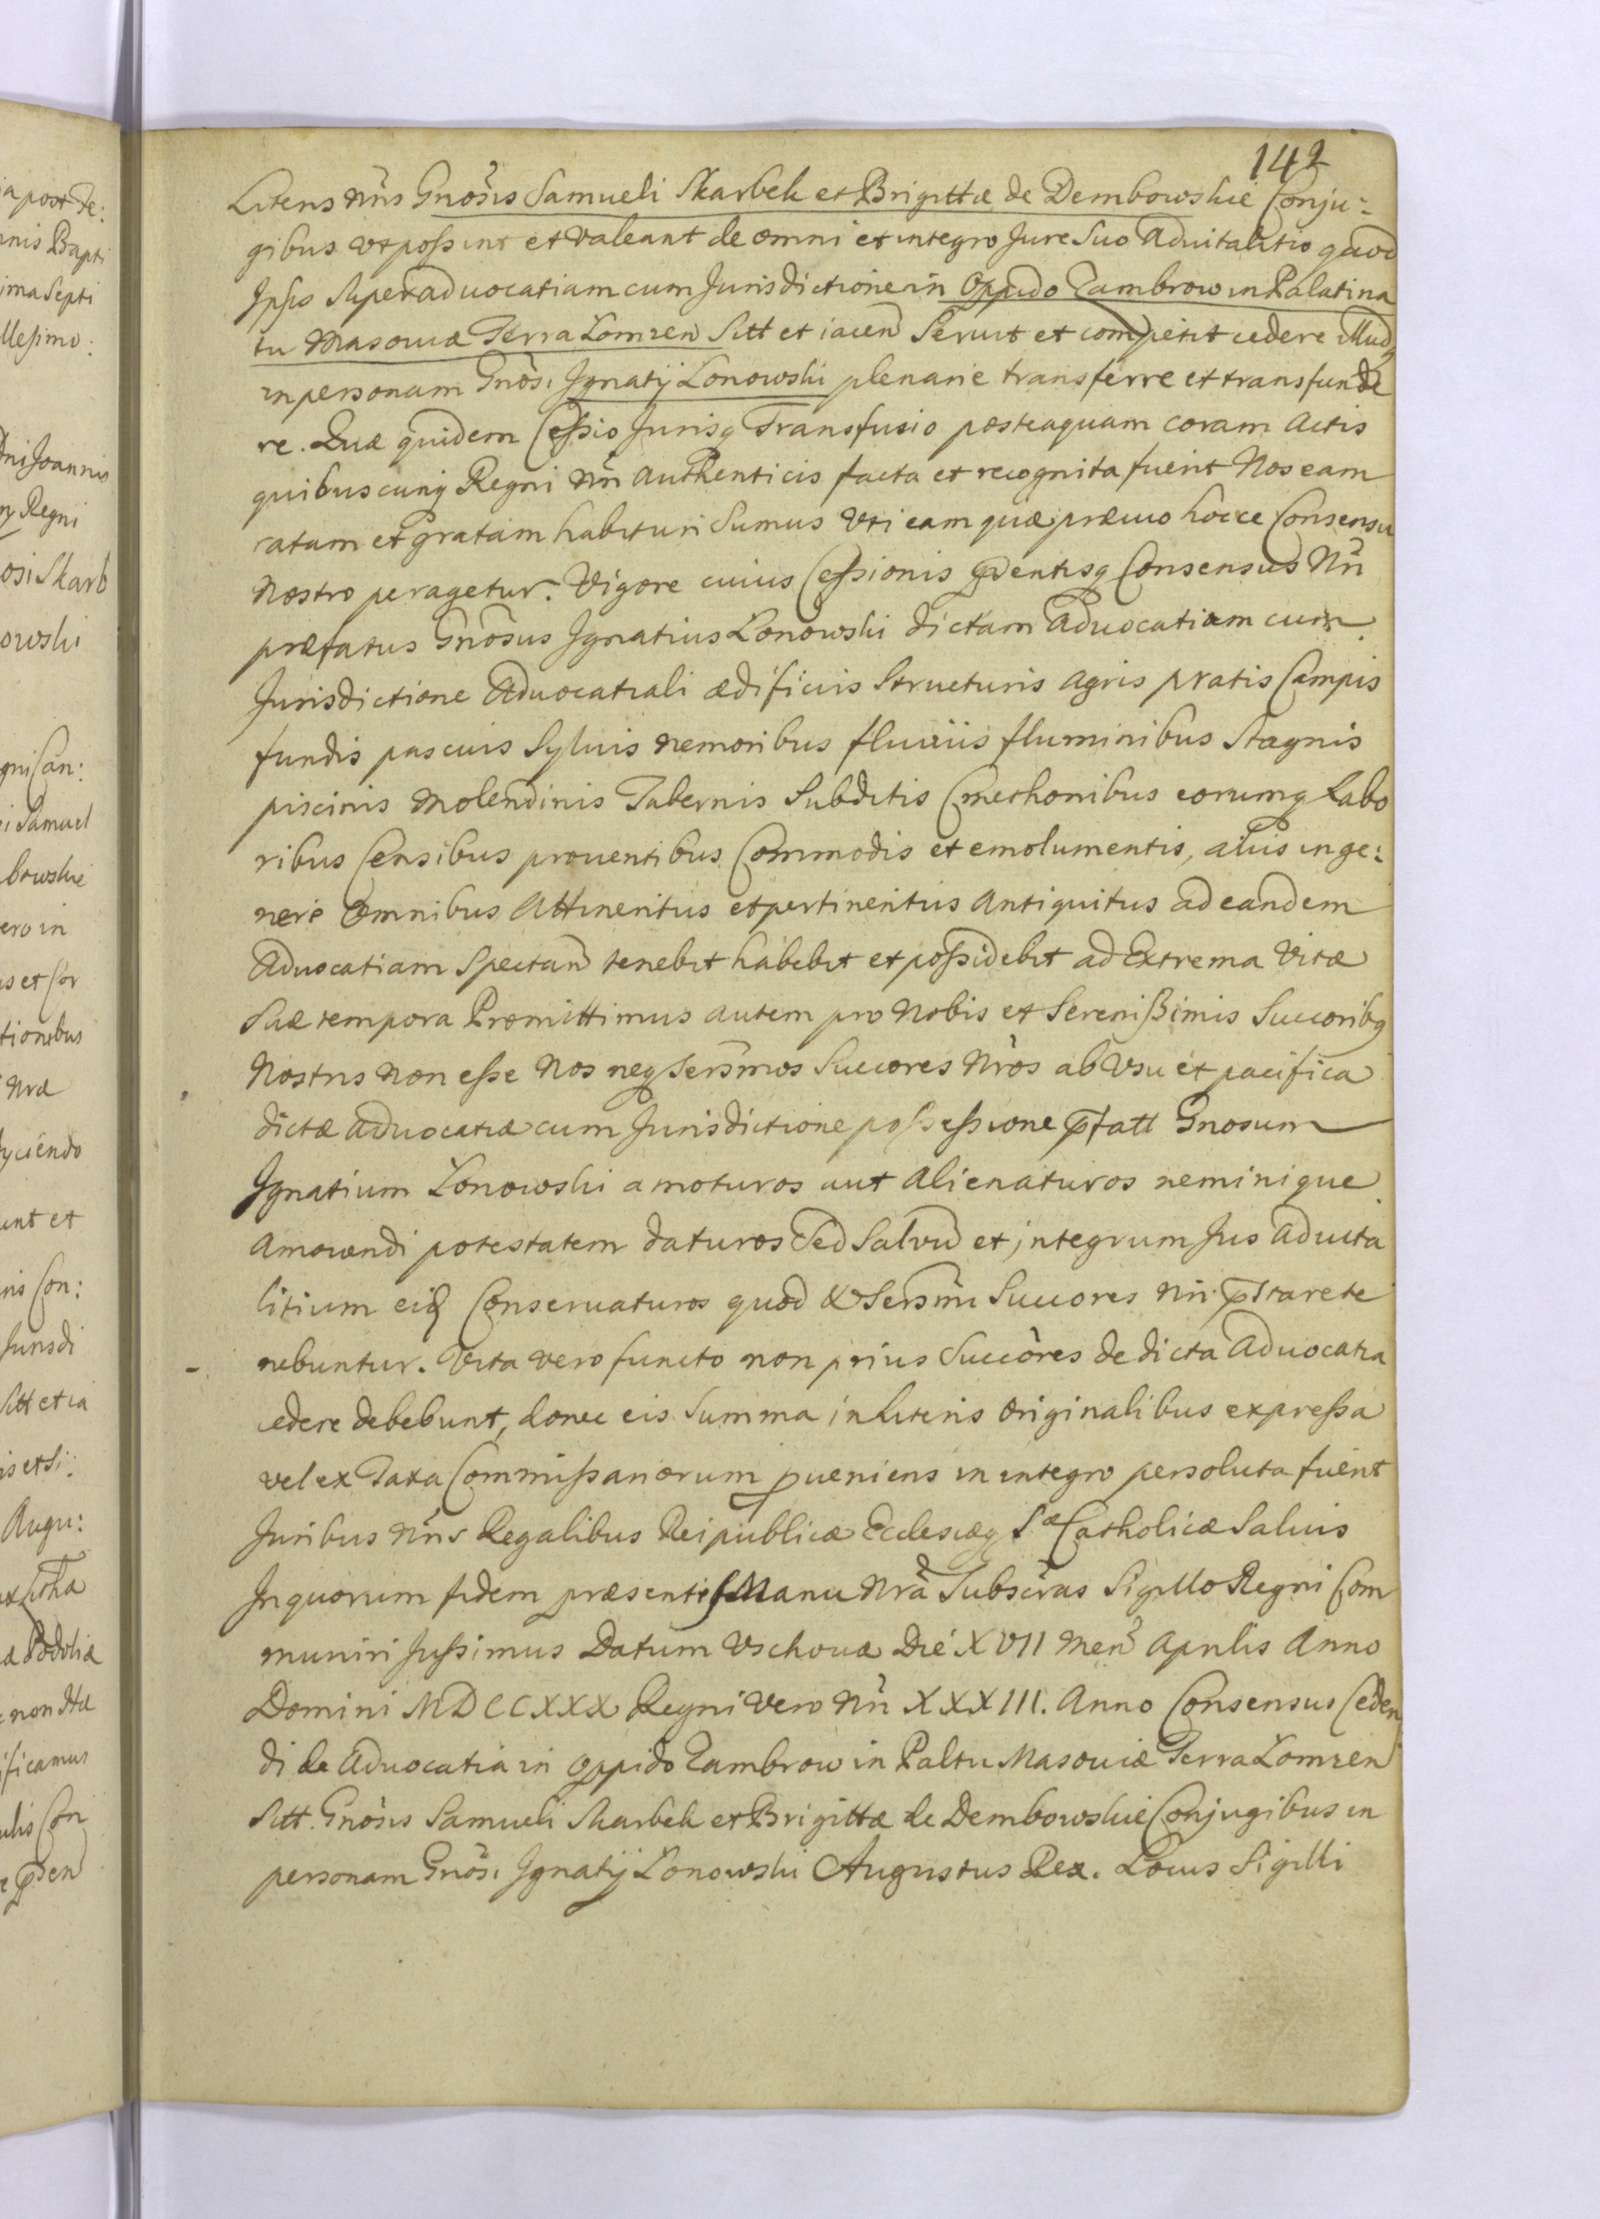 142
Literis nris Gnosis Samueli Skarbek et Brigittæ de Dembowskie Conju:
gibus ut possint et valeant de omni et integro Jure Suo Aduitalitio quod
Ipsis Super aduocatiam cum Jurisdictione in Oppido Zambrow in Palatina
tu Masouiæ Terra Lomzen Sitt et iacen Seruit et competit cedere illudq
in personam Gnosi Ignatij Lonowski plenarie transferre et transfunde
re. Quæ quidem Cessio Jurisq Transfusio posteaquam coram Actis
quibuscunq Regni nri Authenticis facta et recognita fuerit Nos eam
ratam et gratam habituri Sumus Uti eam quæ præuio hocce Consensu
Nostro peragetur. Vigore cuius Cessionis pdentisq Consensus Nri
præfatus Gnosus Ignatius Lonowski dictam Aduocatiam cum
Jurisdictione Aduocatiali ædificiis Structuris Agris pratis Campis
fundis pascuis Syluis nemoribus fluuiis fluminibus Stagnis
piscinis Molendinis Tabernis Subditis Cmethonibus eorumq Labo
ribus Censibus prouentibus Commodis et emolumentis, aliis in ge:
nere Omnibus Attinentiis et pertinentiis Antiquitus ad eandem
Aduocatiam Spectan tenebit habebit et possidebit ad Extrema Vitæ
Suæ tempora Promittimus autem pro Nobis et Serenissimis Succoribq
Nostris non esse Nos neq Sersmos Succores Nros ab Usu et pacifica
dictæ aduocatiæ cum Jurisdictione possessione pfatt Gnosum
Ignatium Lonowski amoturos aut Alienaturos neminique
Amouendi potestatem daturos Sed Saluu et integrum Jus Aduita
litium eid Conseruaturos quod & Sersmi Succores nri pstare te
nebuntur. Vita vero functo non prius Succores de dicta Aduocatia
cedere debebunt, donec eis Summa in Literis Originalibus expressa
vel ex Taxa Commissariorum pueniens in integro persoluta fuerit
Juribus nris Regalibus Reipublicæ Ecclesiæq Sæ Catholicæ Saluis
In quorum fidem præsentes Manu Nra Subscras Sigillo Regni Com
muniri Jussimus Datum Vschouæ Die XVII Men Aprilis Anno
Domini MDCCXXX Regni Vero Nri XXXIII. Anno Consensus Ceden
di de Aduocatia in Oppido Zambrow in Paltu Masouiæ Terra Lomzen
Sitt. Gnosis Samueli Skarbek et Brigittæ de Dembowskie Conjugibus in
personam Gnosi Ignatij Lonowski Augustus Rex. Locus Sigilli